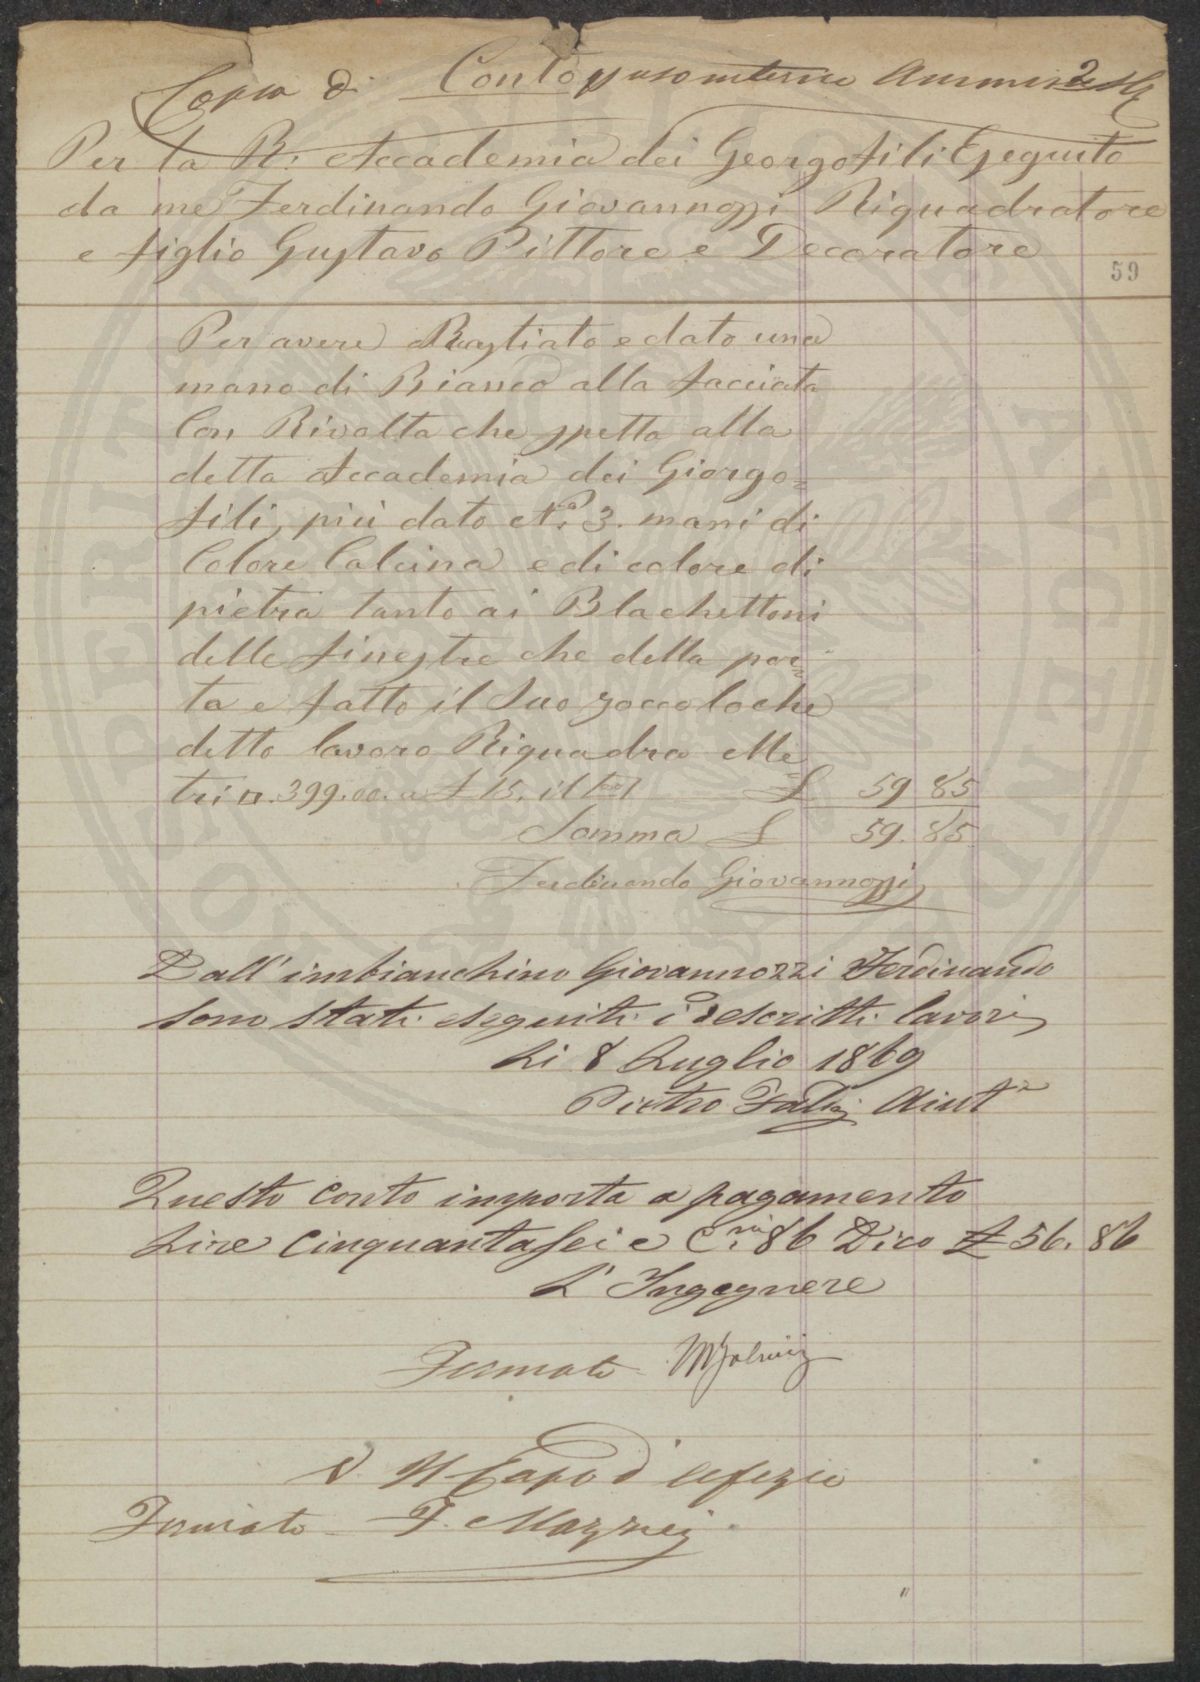 Copia di Conto per uso interno Amminis
2
Per la R. Accademia dei Georgofili Eseguito
da me Ferdinando Giovannozzi Riquadratore
e figlio Gustavo Pittore e Decoratore
59
Per avere Rastiato e dato una
mano di Bianco alla facciata
Con Rivolta che spetta alla
detta Accademia dei Giorgo=
fili, più dato N.º 3. mani di
Colore Calcina e di colore di
pietra tanto ai Blachettoni
delle finestre che della por=
ta e fatto il Suo zoccolo che
detto lavoro Riquadra Me
tri □. 399.00. a £ 15. il £ 59 85
Somma £ 59. 85
Ferdinando Giovannozzi
Dall'imbianchino Giovannozzi Ferdinando
sono stati eseguiti i descritti lavori
Li 8 Luglio 1869
Pietro Aiut.e
Questo conto importa a pagamento
Lire Cinquantasei e C.mi 86 Dico £ 56. 86
L'Ingegnere
Firmato
V. Il Capo d'Ufizio
Firmato F. Mazzei